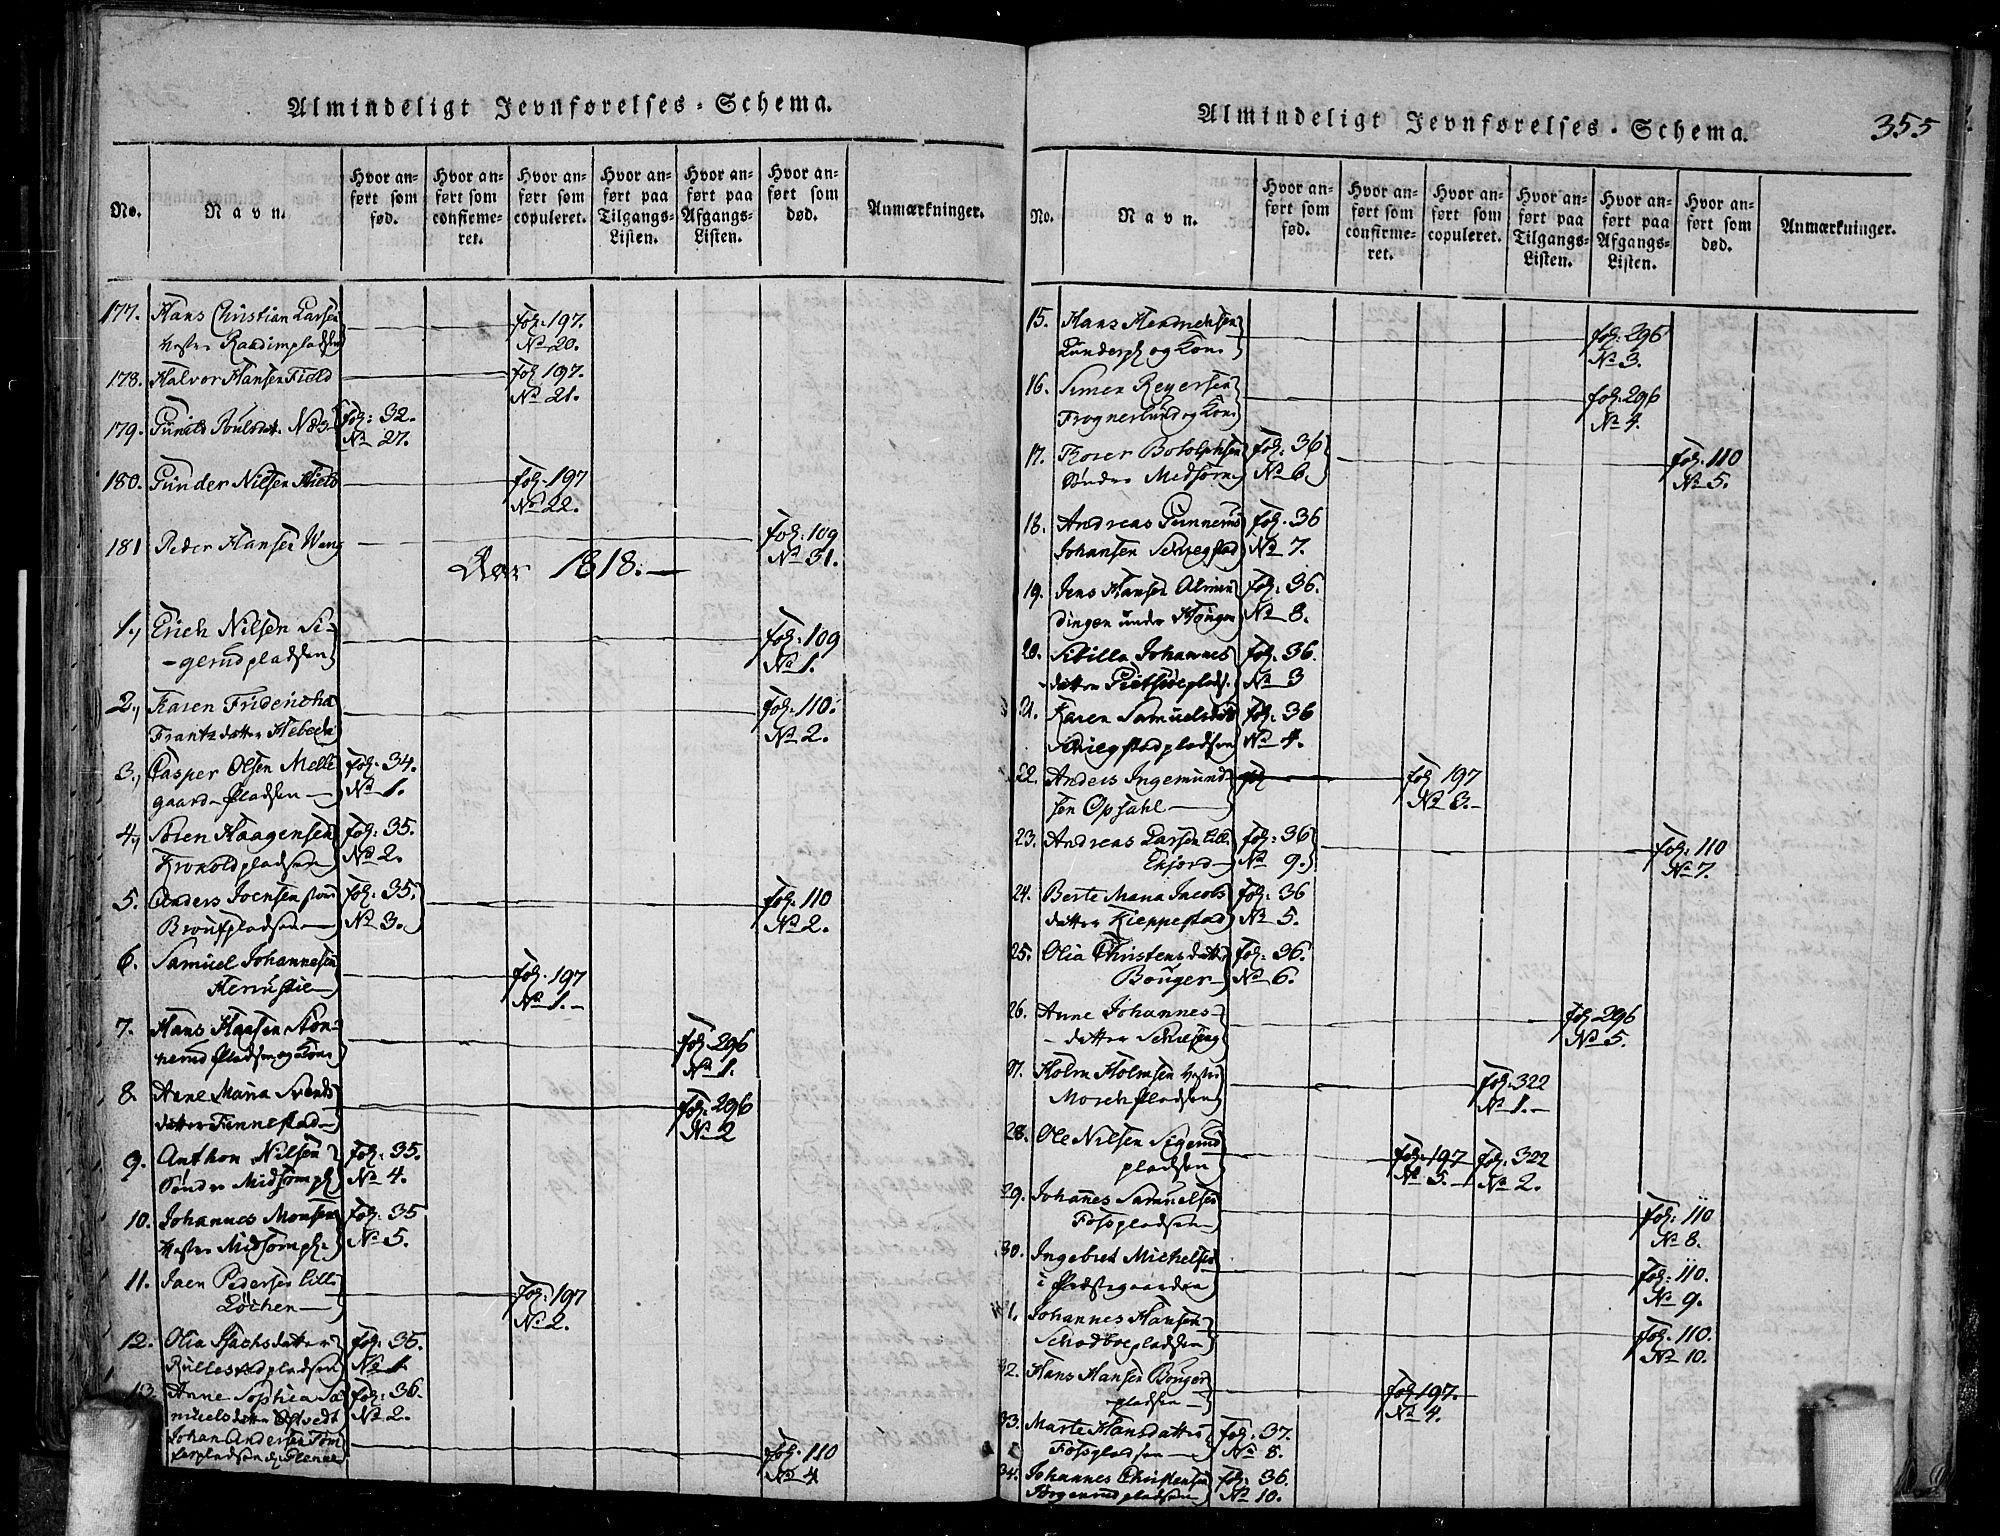 Almindeligt Jevnførelses-Schema.
No.
Navn.
Hvor anført som fød.
Hvor anført som confirmeret.
Hvor anført som copuleret.
Hvor anført paa Tilgangs-Listen.
Hvor anført paa Afgangs-Listen.
Hvor anført som død.
Anmærkninger.
177. Hans Christian Larsen fol. 197.
No 20.
178. Halvor Hansen Field fol 197.
No 21.
179. Gunild Næs fol: 32.
No 27.
180. Gunder Nilsen fol. 197
No 22.
181 Peder Hansen Wang fol: 109
No 31.
Aar 1818.
1, Erich Nilsen Si- fol: 109
gerudpladsen No 1.
2, Karen Fridericha fol: 110.
Frantzdatter No 2.
3, Casper Olsen Melle fol: 34.
gaard Pladsen No 1.
4, Søren Haagensen fol: 35.
Krokoldpladsen No 2.
5. Anders Joensen fol: 35. fol: 110
No 3. No 2.
6. Samuel Johannesen fol. 197
No 1.
7. Hans Hansen fol 296
Pladsen og Kone No 1.
8. Anne Maria fol: 296
datter Finnestad No 2
9. Anthon Nilsen fol: 35.
Søndre Midsompl No 4.
10. Johannes Monsen fol: 35
Vestre Midsompl. No 5.
11. Jaen Pedersen Lille fol: 197
Løchen No 2.
12. Olia Isachsdatter fol: 35.
Rullestadpladsen No 1
13. Anne Sophia Sa fol: 36.
muelsdatter No 2.
Johan Andersen fol: 110
No 4
Almindeligt Jevnførelses-Schema.
355
No.
Navn.
Hvor anført som fød.
Hvor anført som confirmeret.
Hvor anført som copuleret.
Hvor anført paa Tilgangs-Listen.
Hvor anført paa Afgangs-Listen.
Hvor anført som død.
Anmærkninger.
15. Hans Hendrichsen fol: 296
og Kone No 3.
16. Simen Reyersen fol. 296
Frognerlund og Kone No 4.
17. Thorer Botolphsen fol: 36 fol: 110
Søndre Midsom No 6. No 5.
18. Andreas Gunnerus fol. 36
Johansen No 7.
19. Jens Hansen Almin fol: 36.
dingen under No 8.
20. Sibilla Johannes fol. 36.
datter No 3
21. Karen Samuelsdatt fol: 36
No 4.
22. Anders Ingemund fol 197
sen Opsahl No 3.
23. Andreas Larsen Lille fol: 36 fol: 110
Ekjord No 9. No 7.
24. Berte Maria Jacobs fol: 36
datter Kieppestad No 5.
25. Olia Christensdatter fol: 36.
Bouger No 6.
26. Anne Johannes- fol 296
datter No 5.
27. Holm Holmsen Vestre fol. 322
Moseh Pladsen No 1.
28. Ole Nilsen Sigerud fol: 197 fol: 322
pladsen No 5. No 2.
29. Johanes Samuelsen fol: 110
Fosspladsen No 8.
30. Ingebret Michelsen fol: 110.
i Præstegaarden No 9.
31. Johannes Hansen fol. 110.
pladsen No 10.
32. Hans Hansen Bouger fol 197.
pladsen No 4.
33. Marte Hansdatter fol: 37.
Fosspladsen No 8.
34. Johannes Christensen fol: 36.
pladsen No 10.